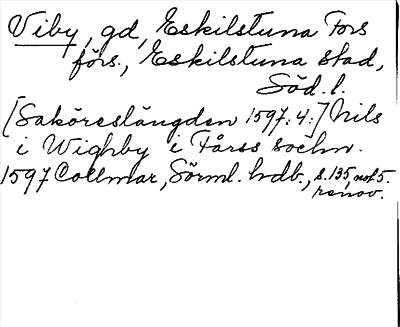 Viby, gd, Eskilstuna Fors
förs., Eskilstuna stad,
Söd. l.
[Saköreslängden 1597:4:] Nils
i Wighby i Fårss sochn.
1597 Collmar, Sörml. hdb., s. 135, not 5.
renov.